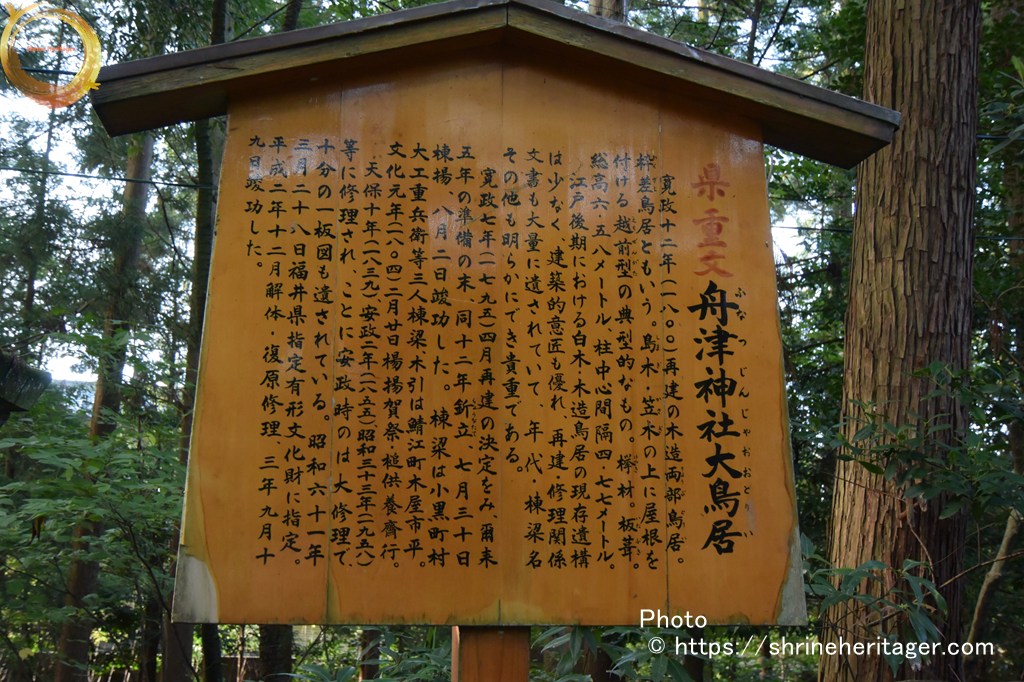 県重文 舟津神社大鳥居
ふなつじんじゃおおとりい
寛政十二年(一八〇〇)再建の木造両部鳥居。
枠差鳥居ともいう。島木・笠木の上に屋根を
付ける越前型の典型的なもの。欅材。板葺。
総高六・五八メートル、柱中心間隔四・七七メートル。
江戸後期における白木・木造鳥居の現存遺構
は少なく、建築的意匠も優れ、再建・修理関係
文書も大量に遺されていて、年代・棟梁名
その他も明らかにでき貴重である。
寛政七年(一七九五)四月再建の決定をみ、爾来
五年の準備の末、同十二年釿立、七月三十日
棟揚、八月二日竣功した。棟梁は小黒町村
大工重兵衛等三人棟梁、木引は鯖江町木屋市平。
文化元年(一八〇四)二月廿日楊揚賀祭・槌供養斎行。
天保十年(一八三九)安政二年(一八五五)昭和三十三年(一九五八)
等に修理され、ことに安政時のは大修理で、
十分の一板図も遺されている。昭和六十一年
三月二十八日福井県指定有形文化財に指定。
平成二年十二月解体・復原修理、三年九月十
九日竣功した。
Photo
© https://shrineheritager.com